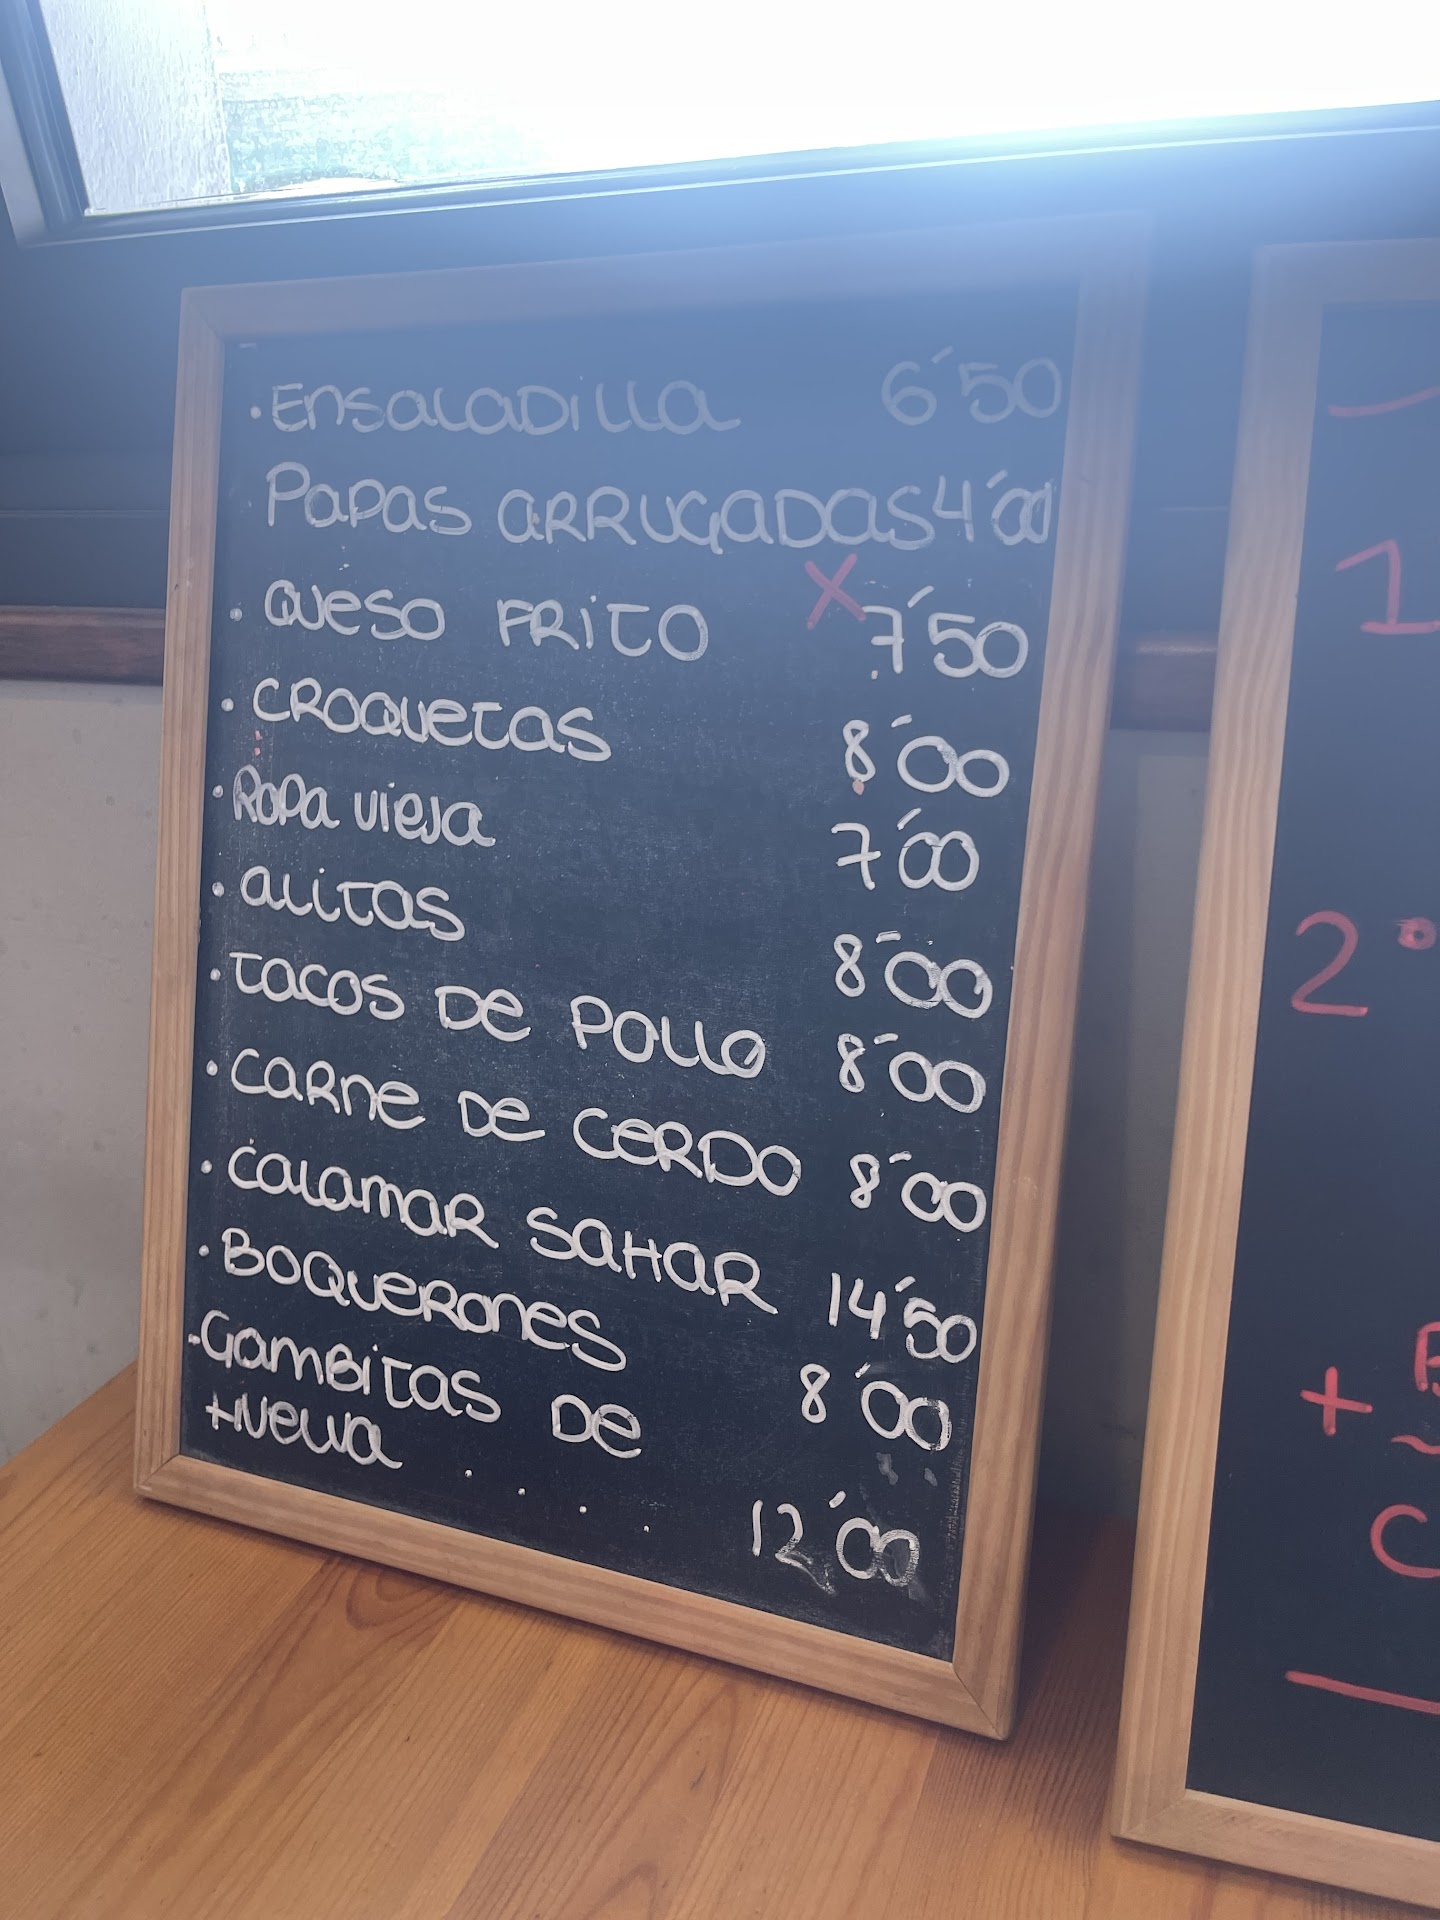 . Ensaladilla 6'50
Papas arrugadas 4'00
. Queso frito X 7'50
. Croquetas 8'00
. Ropa vieja 7'00
. alitas 8'00
. Tacos de pollo 8'00
. Carne de cerdo 8'00
. Calamar sahar 14'50
. Boquerones 8'00
. Gambitas de
Huelva . . . . 12'00
1
2º
+ B
C